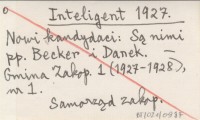 o
Inteligent 1927.
Nowi kandydaci: Są nimi
pp. Becker i Danek. —
Gmina Zakop. 1 (1927-1928),
nr 1.
Samorząd zakop.